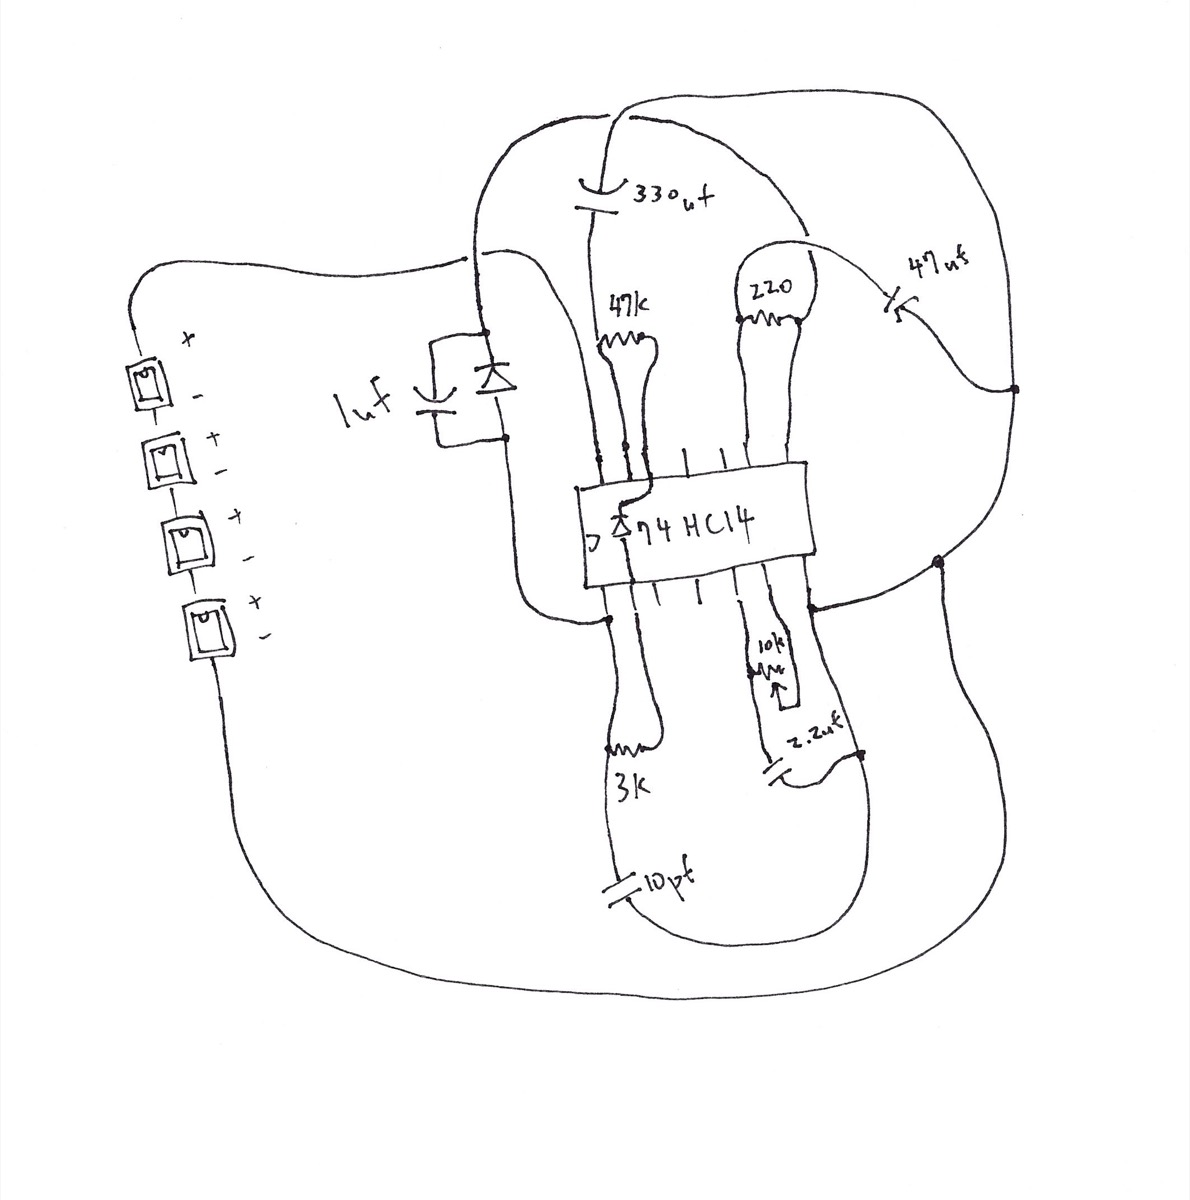 330uf
47uf
220
47k
+
-
1uf
+
-
+
-
74HC14
+
-
10k
2.2uf
3k
10pf